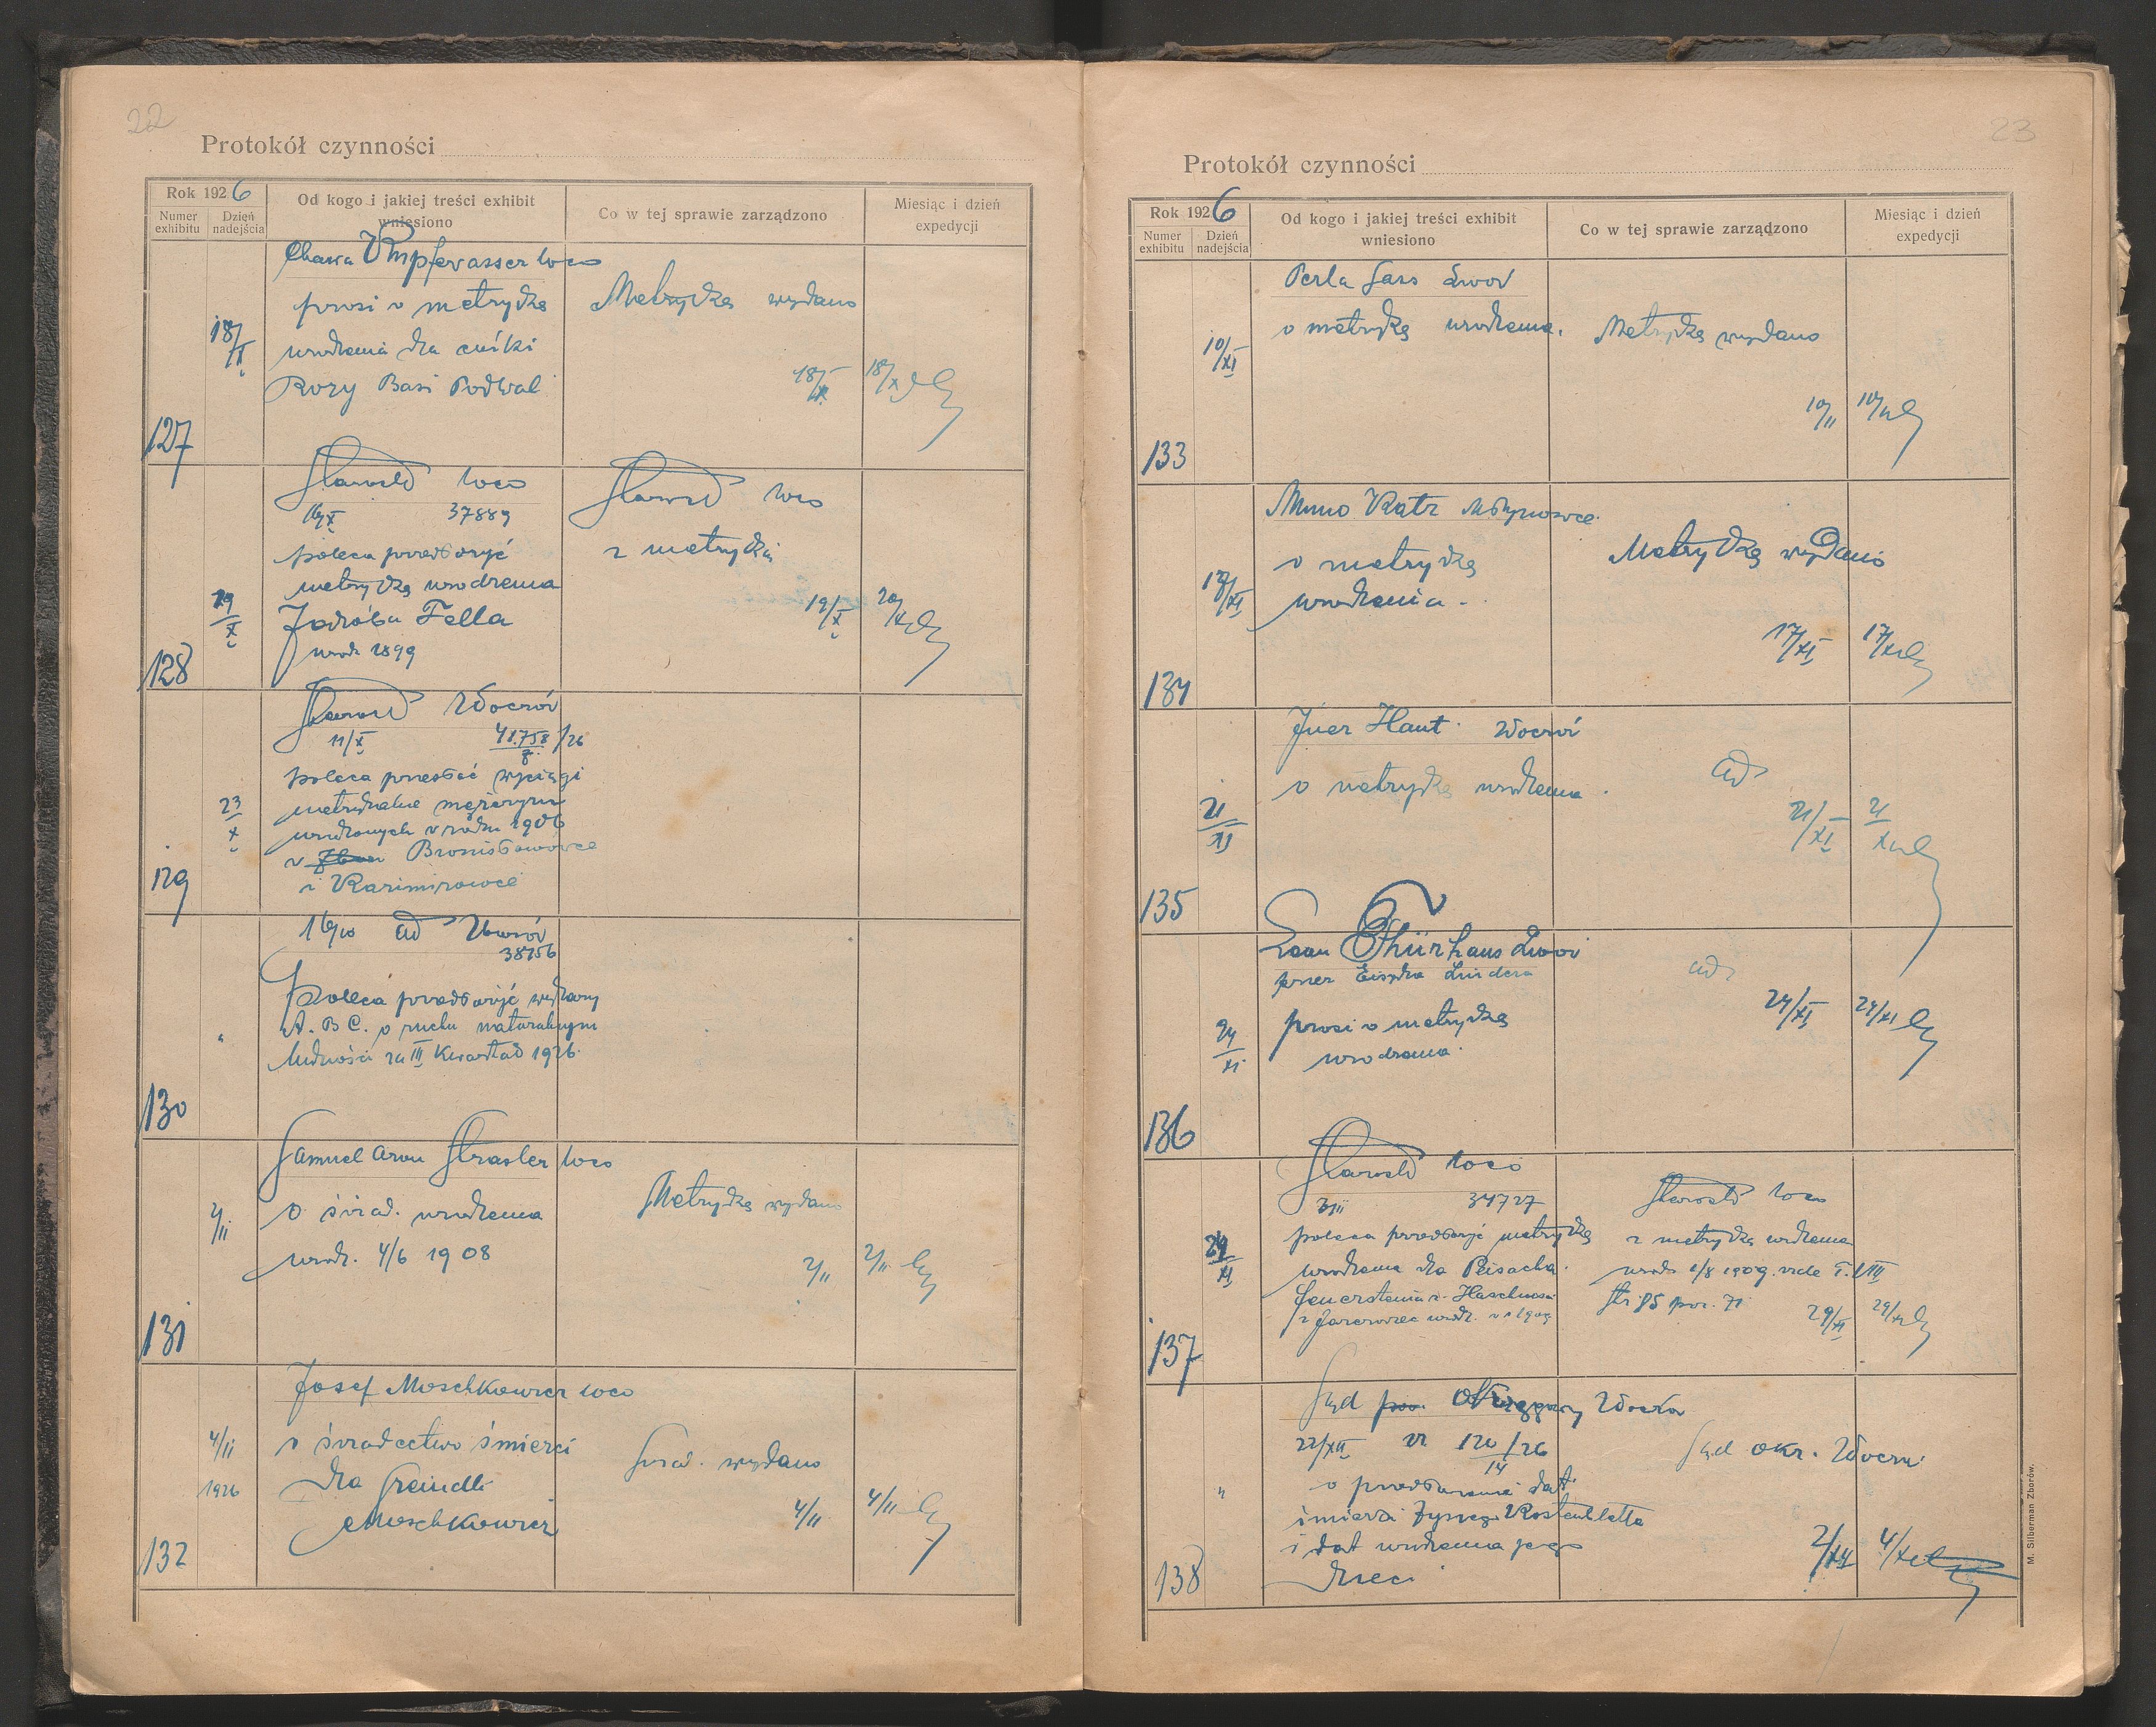 22
Protokół czynności
Rok 1926
Numer exhibitu
Dzień nadejścia
Od kogo i jakiej treści exhibit wniesiono
Co w tej sprawie zarządzono
Miesiąc i dzień expedycji
127
18/X
Chawa loco
prosi o metrykę
urodzenia dla córki
Rozy Basi Podwal
Metrykę wydano
18/X
18/X
128
19/X
Starostwo loco
16/X 37889
poleca przedłożyć
metrykę urodzenia
Jakóba Fella
urodz 1899
Starostwo loco
z metryką
19/X
20/X
129
23/X
Starostwo Złoczów
11/X 41.758/26
poleca przesłać wyciągi
metrykalne mężczyzn
urodzonych w roku 1906
w Bronisławówce
i Kazimirowce
130
"
16/10 Zborów
38156
Poleca przedłożyć wykazy
A. B C. o ruchu naturalnym
ludności za III Kwartał 1926.
131
2/11
Samuel Aron Strasler loco
o świad. urodzenia
urodz. 4/6 1908
Metrykę wydano
2/11
2/11
132
4/11
1926
Josef Moschkowicz loco
o świadectwo śmierci
dla Greindli
Moschkowicz
Świad. wydano
4/11
4/11
23
Protokół czynności
Rok 1926
Numer exhibitu
Dzień nadejścia
Od kogo i jakiej treści exhibit wniesiono
Co w tej sprawie zarządzono
Miesiąc i dzień expedycji
133
10/XI
Perla Gars Lwów
o metrykę urodzenia.
Metrykę wydano
10/11
10/11
134
17/XI
Muno Katz Młynowce
o metrykę
urodzenia.
Metrykę wydano
17/XI
17/XI
135
21/XI
Haut Złoczów
o metrykę urodzenia.
21/XI
21/XI
136
24/XI
Leon Thürhaus Lwów
przez
prosi o metrykę
urodzenia.
24/XI
24/XI
137
29/XI
Starostwo loco
34727
poleca przedłożyć metrykę
urodzenia dla Peisacha
Feuersteina
z Jarczowiec urodz. w r 1909
Starostwo loco
z metryką urodzenia
urodz 1/8 1909. vide T. III
Str 85 poz. 71
29/XI
29/XI
138
"
Sąd Okręgowy Złoczów
22/XII 120/26
14
o przedłożenie dat
śmierci Kostenblatta
i dat urodzenia jego
dzieci
Sąd okr. Złoczów
2/XII
4/XII
M. Silberman Zborów.